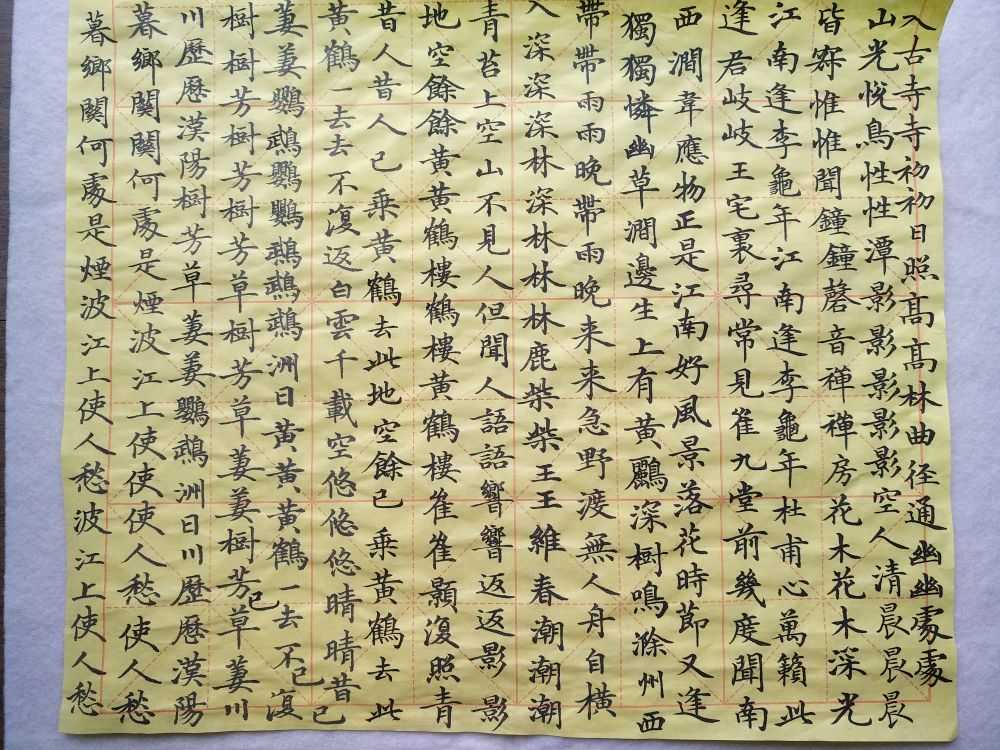 入古寺寺初初日照高高林曲径通幽幽處處
山光悅鳥性性潭影影影影影空人清晨晨晨
皆寂惟惟聞鐘鐘磬音禪禪房花木花木深光
江南逢李龜年江南逢李龜年杜甫心萬籟此
逢君岐岐王宅裏尋常見崔九堂前幾度聞南
西澗韋應物正是江南好風景落花時節又逢
獨獨憐幽草澗邊生上有黃鸝深樹鳴滁州西
帶帶雨雨晚帶雨晚来来急野渡無人舟自橫
入深深深林深林林林鹿柴柴王王維春潮潮潮
青苔上空山不見人但聞人語語響響返返影影
地空餘餘黃黃鶴樓鶴樓黃鶴樓崔崔顥復照青
昔人昔人已乘黃鶴去此地空餘已乘黃鶴去此
黃鶴一去去不復返白雲千載空悠悠悠晴晴昔已
萋萋鸚鵡鸚鸚鵡鵡鵡洲日黃黃黃鶴一去不已復
樹樹芳樹芳樹芳草樹芳草萋萋樹芳已草萋川
川歷歷漢陽樹芳草萋萋鸚鵡洲日川歷歷漢陽
暮鄉關關何處是煙波江上使使使人愁使人愁
暮鄉關何處是煙波江上使人愁波江上使人愁